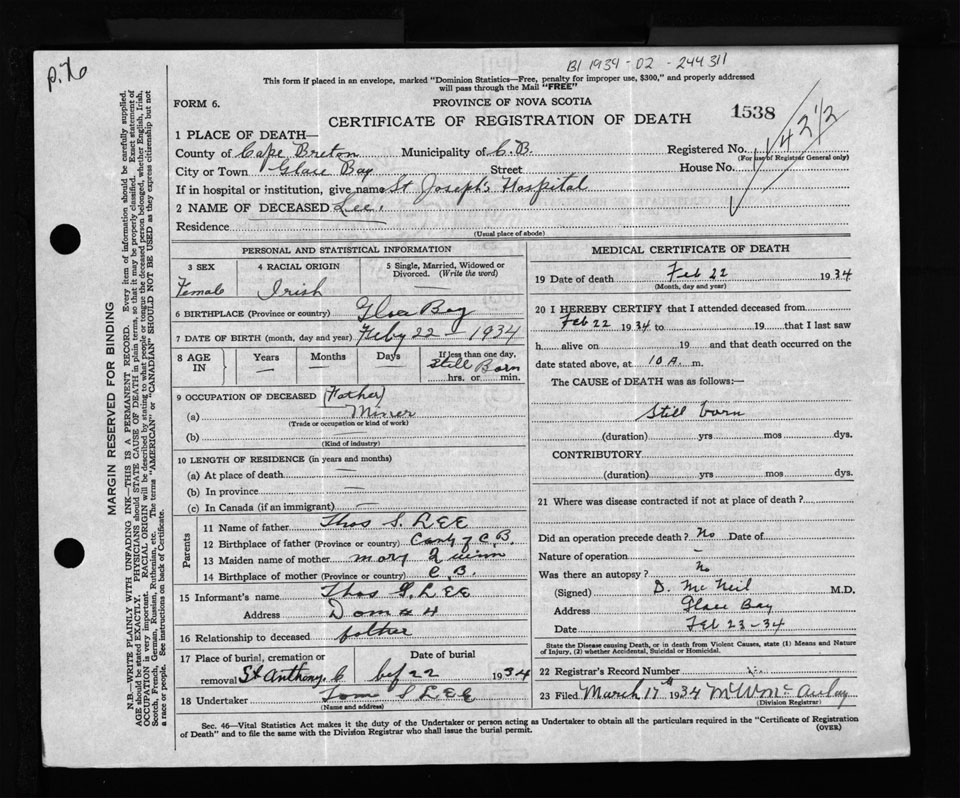 p.76
B1 1934-02-244311
This form if placed in an envelope, marked "Dominion Statistics—Free, penalty for improper use, $300," and properly addressed
will pass through the Mail "FREE"
FORM 6.
PROVINCE OF NOVA SCOTIA
CERTIFICATE OF REGISTRATION OF DEATH
1538
1 PLACE OF DEATH—
County of Cape Breton Municipality of C.B. Registered No.
(For use of Registrar General only)
City or Town Glace Bay Street House No.
If in hospital or institution, give name St Joseph's Hospital
2 NAME OF DECEASED Lee.
Residence
(Usual place of abode)
PERSONAL AND STATISTICAL INFORMATION
3 SEX 4 RACIAL ORIGIN 5 Single, Married, Widowed or
Divorced. (Write the word)
Female Irish —
6 BIRTHPLACE (Province or country) Glace Bay
7 DATE OF BIRTH (month, day and year) Feby 22 - 1934
8 AGE IN Years Months Days If less than one day,
— — — Still Born
hrs. or min.
9 OCCUPATION OF DECEASED (Father)
(a) Miner
(Trade or occupation or kind of work)
(b)
(Kind of industry)
10 LENGTH OF RESIDENCE (in years and months)
(a) At place of death —
(b) In province —
(c) In Canada (if an immigrant) —
Parents
11 Name of father Thos S. LEE
12 Birthplace of father (Province or country) C.B.
13 Maiden name of mother Mary Quinn
14 Birthplace of mother (Province or country) C.B.
15 Informant's name Thos G. LEE
Address Dom # 4
16 Relationship to deceased father
17 Place of burial, cremation or Date of burial
removal St Anthony C 22 1934
18 Undertaker Tom S LEE
(Name and address)
MEDICAL CERTIFICATE OF DEATH
19 Date of death Feb 22 1934
(Month, day and year)
20 I HEREBY CERTIFY that I attended deceased from
Feb 22 1934 to 19 that I last saw
h alive on 19 and that death occurred on the
date stated above, at 10 A. m.
The CAUSE of DEATH was as follows:—
Still born
(duration) yrs mos dys.
CONTRIBUTORY
(duration) yrs mos dys.
21 Where was disease contracted if not at place of death?
Did an operation precede death? No Date of
Nature of operation —
Was there an autopsy? No
(Signed) D. McNeil M.D.
Address Glace Bay
Date FEB 23-34
State the Disease causing Death, or in death from Violent Causes, state (1) Means and Nature
of Injury, (2) whether Accidental, Suicidal or Homicidal.
22 Registrar's Record Number
23 Filed March 17 1934 McAulay
(Division Registrar)
Sec. 46—Vital Statistics Act makes it the duty of the Undertaker or person acting as Undertaker to obtain all the particulars required in the "Certificate of Registration
of Death" and to file the same with the Division Registrar who shall issue the burial permit.
(OVER)
MARGIN RESERVED FOR BINDING
N.B.—WRITE PLAINLY WITH UNFADING INK—THIS IS A PERMANENT RECORD. Every item of information should be carefully supplied.
AGE should be stated EXACTLY. PHYSICIANS should STATE CAUSE OF DEATH in plain terms, so that it may be properly classified. Exact statement of
OCCUPATION is very important. RACIAL ORIGIN will be described by stating to what people or tongue the deceased person belonged, whether English, Irish,
Scotch, French, German, Russian, Ruthenian, etc. The terms "AMERICAN" or "CANADIAN" SHOULD NOT BE USED as they express citizenship but not
a race or people. See instructions on back of Certificate.